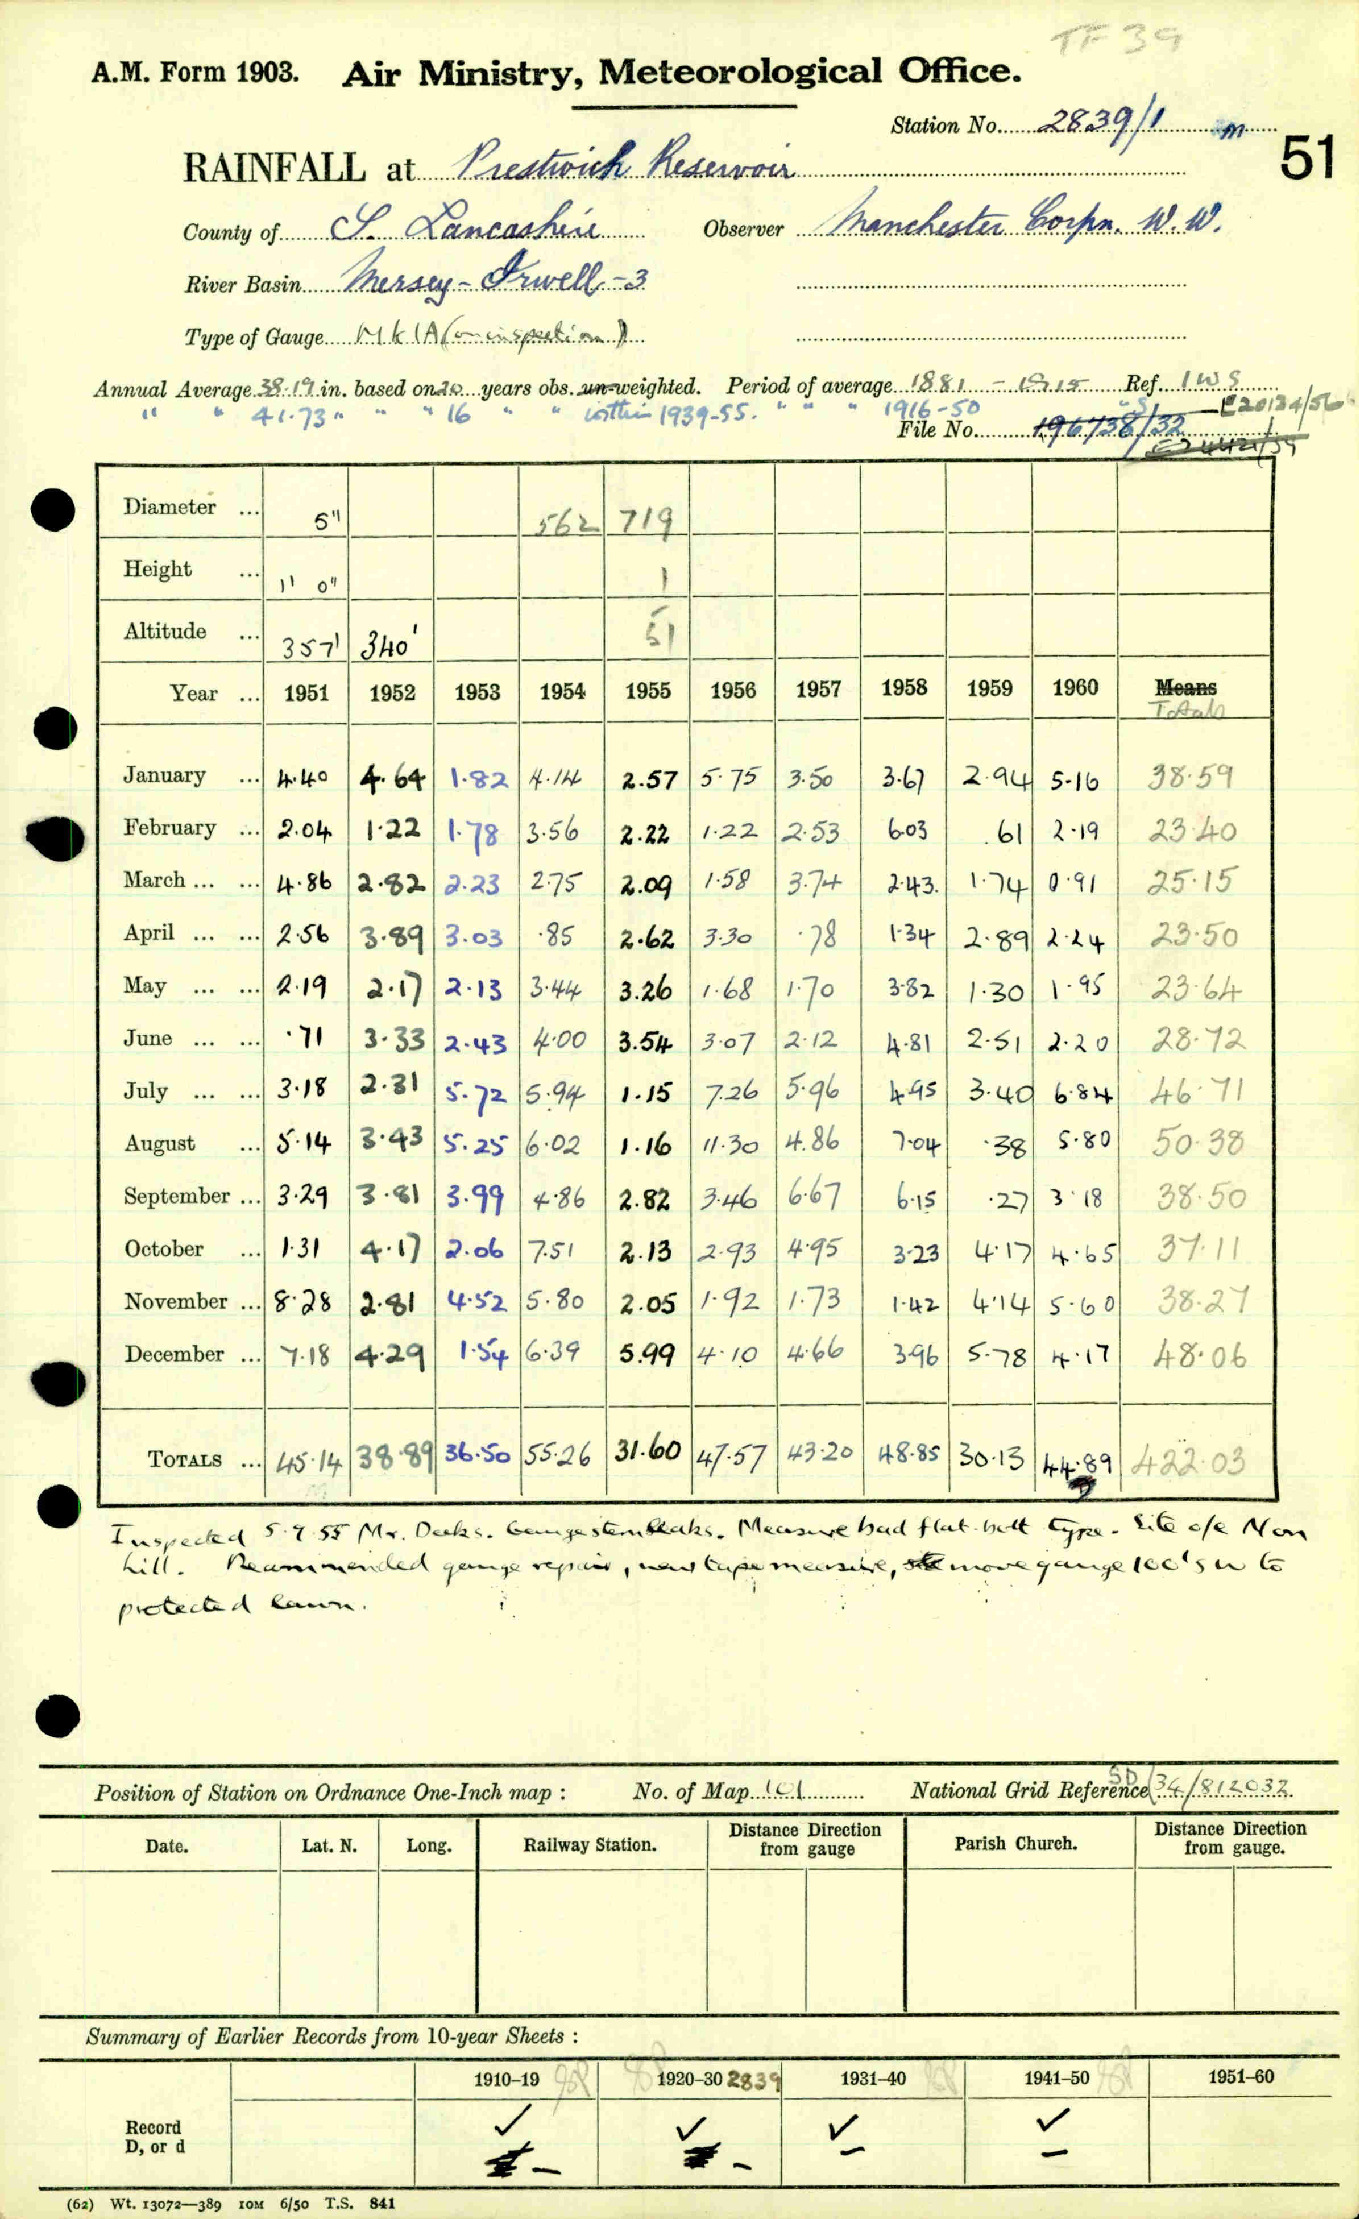 TF 39
A.M. Form 1903. Air Ministry, Meteorological Office.
Station No. 2839/1 m
51
RAINFALL at Prestwich Reservoir
County of S. Lancashire Observer Manchester Corpn. W.W.
River Basin Mersey - Irwell - 3
Type of Gauge Mk 1A (on inspection)
Annual Average 38.19 in. based on 20 years obs. un-weighted. Period of average 1881 - 1915 Ref. IWS
" " 41.73 " " " 16 " " within 1939-55. " " " 1916-50 "S E20134/56
File No. 196738/32
Diameter ... 5" 562 719
Height ... 1' 0" 1
Altitude ... 357' 340' 51
Year ... 1951 1952 1953 1954 1955 1956 1957 1958 1959 1960 Means
Totals
January ... 4.40 4.64 1.82 4.14 2.57 5.75 3.50 3.67 2.94 5.16 38.59
February ... 2.04 1.22 1.78 3.56 2.22 1.22 2.53 6.03 .61 2.19 23.40
March ... ... 4.86 2.82 2.23 2.75 2.09 1.58 3.74 2.43. 1.74 0.91 25.15
April ... ... 2.56 3.89 3.03 .85 2.62 3.30 .78 1.34 2.89 2.24 23.50
May ... ... 2.19 2.17 2.13 3.44 3.26 1.68 1.70 3.82 1.30 1.95 23.64
June ... ... .71 3.33 2.43 4.00 3.54 3.07 2.12 4.81 2.51 2.20 28.72
July ... ... 3.18 2.31 5.72 5.94 1.15 7.26 5.96 4.95 3.40 6.84 46.71
August ... 5.14 3.43 5.25 6.02 1.16 11.30 4.86 7.04 .38 5.80 50.38
September ... 3.29 3.81 3.99 4.86 2.82 3.46 6.67 6.15 .27 3.18 38.50
October ... 1.31 4.17 2.06 7.51 2.13 2.93 4.95 3.23 4.17 4.65 37.11
November ... 8.28 2.81 4.52 5.80 2.05 1.92 1.73 1.42 4.14 5.60 38.27
December ... 7.18 4.29 1.54 6.39 5.99 4.10 4.66 3.96 5.78 4.17 48.06
TOTALS ... 45.14 38.89 36.50 55.26 31.60 47.57 43.20 48.85 30.13 44.89 422.03
Inspected 5.9.55 Mr. Deeks. Gauge stem leaks. Measure bad flat bott type. Site o/e N on
hill. Recommended gauge repair, new tape measure, move gauge 100's W to
protected lawn.
Position of Station on Ordnance One-Inch map : No. of Map 101 National Grid Reference SD/34/812032
Date. Lat. N. Long. Railway Station. Distance Direction from gauge Parish Church. Distance Direction from gauge.
Summary of Earlier Records from 10-year Sheets :
1910–19 1920–30 2839 1931–40 1941–50 1951–60
Record ✓ ✓ ✓ ✓
D, or d – – – –
(62) Wt. 13072—389 10M 6/50 T.S. 841